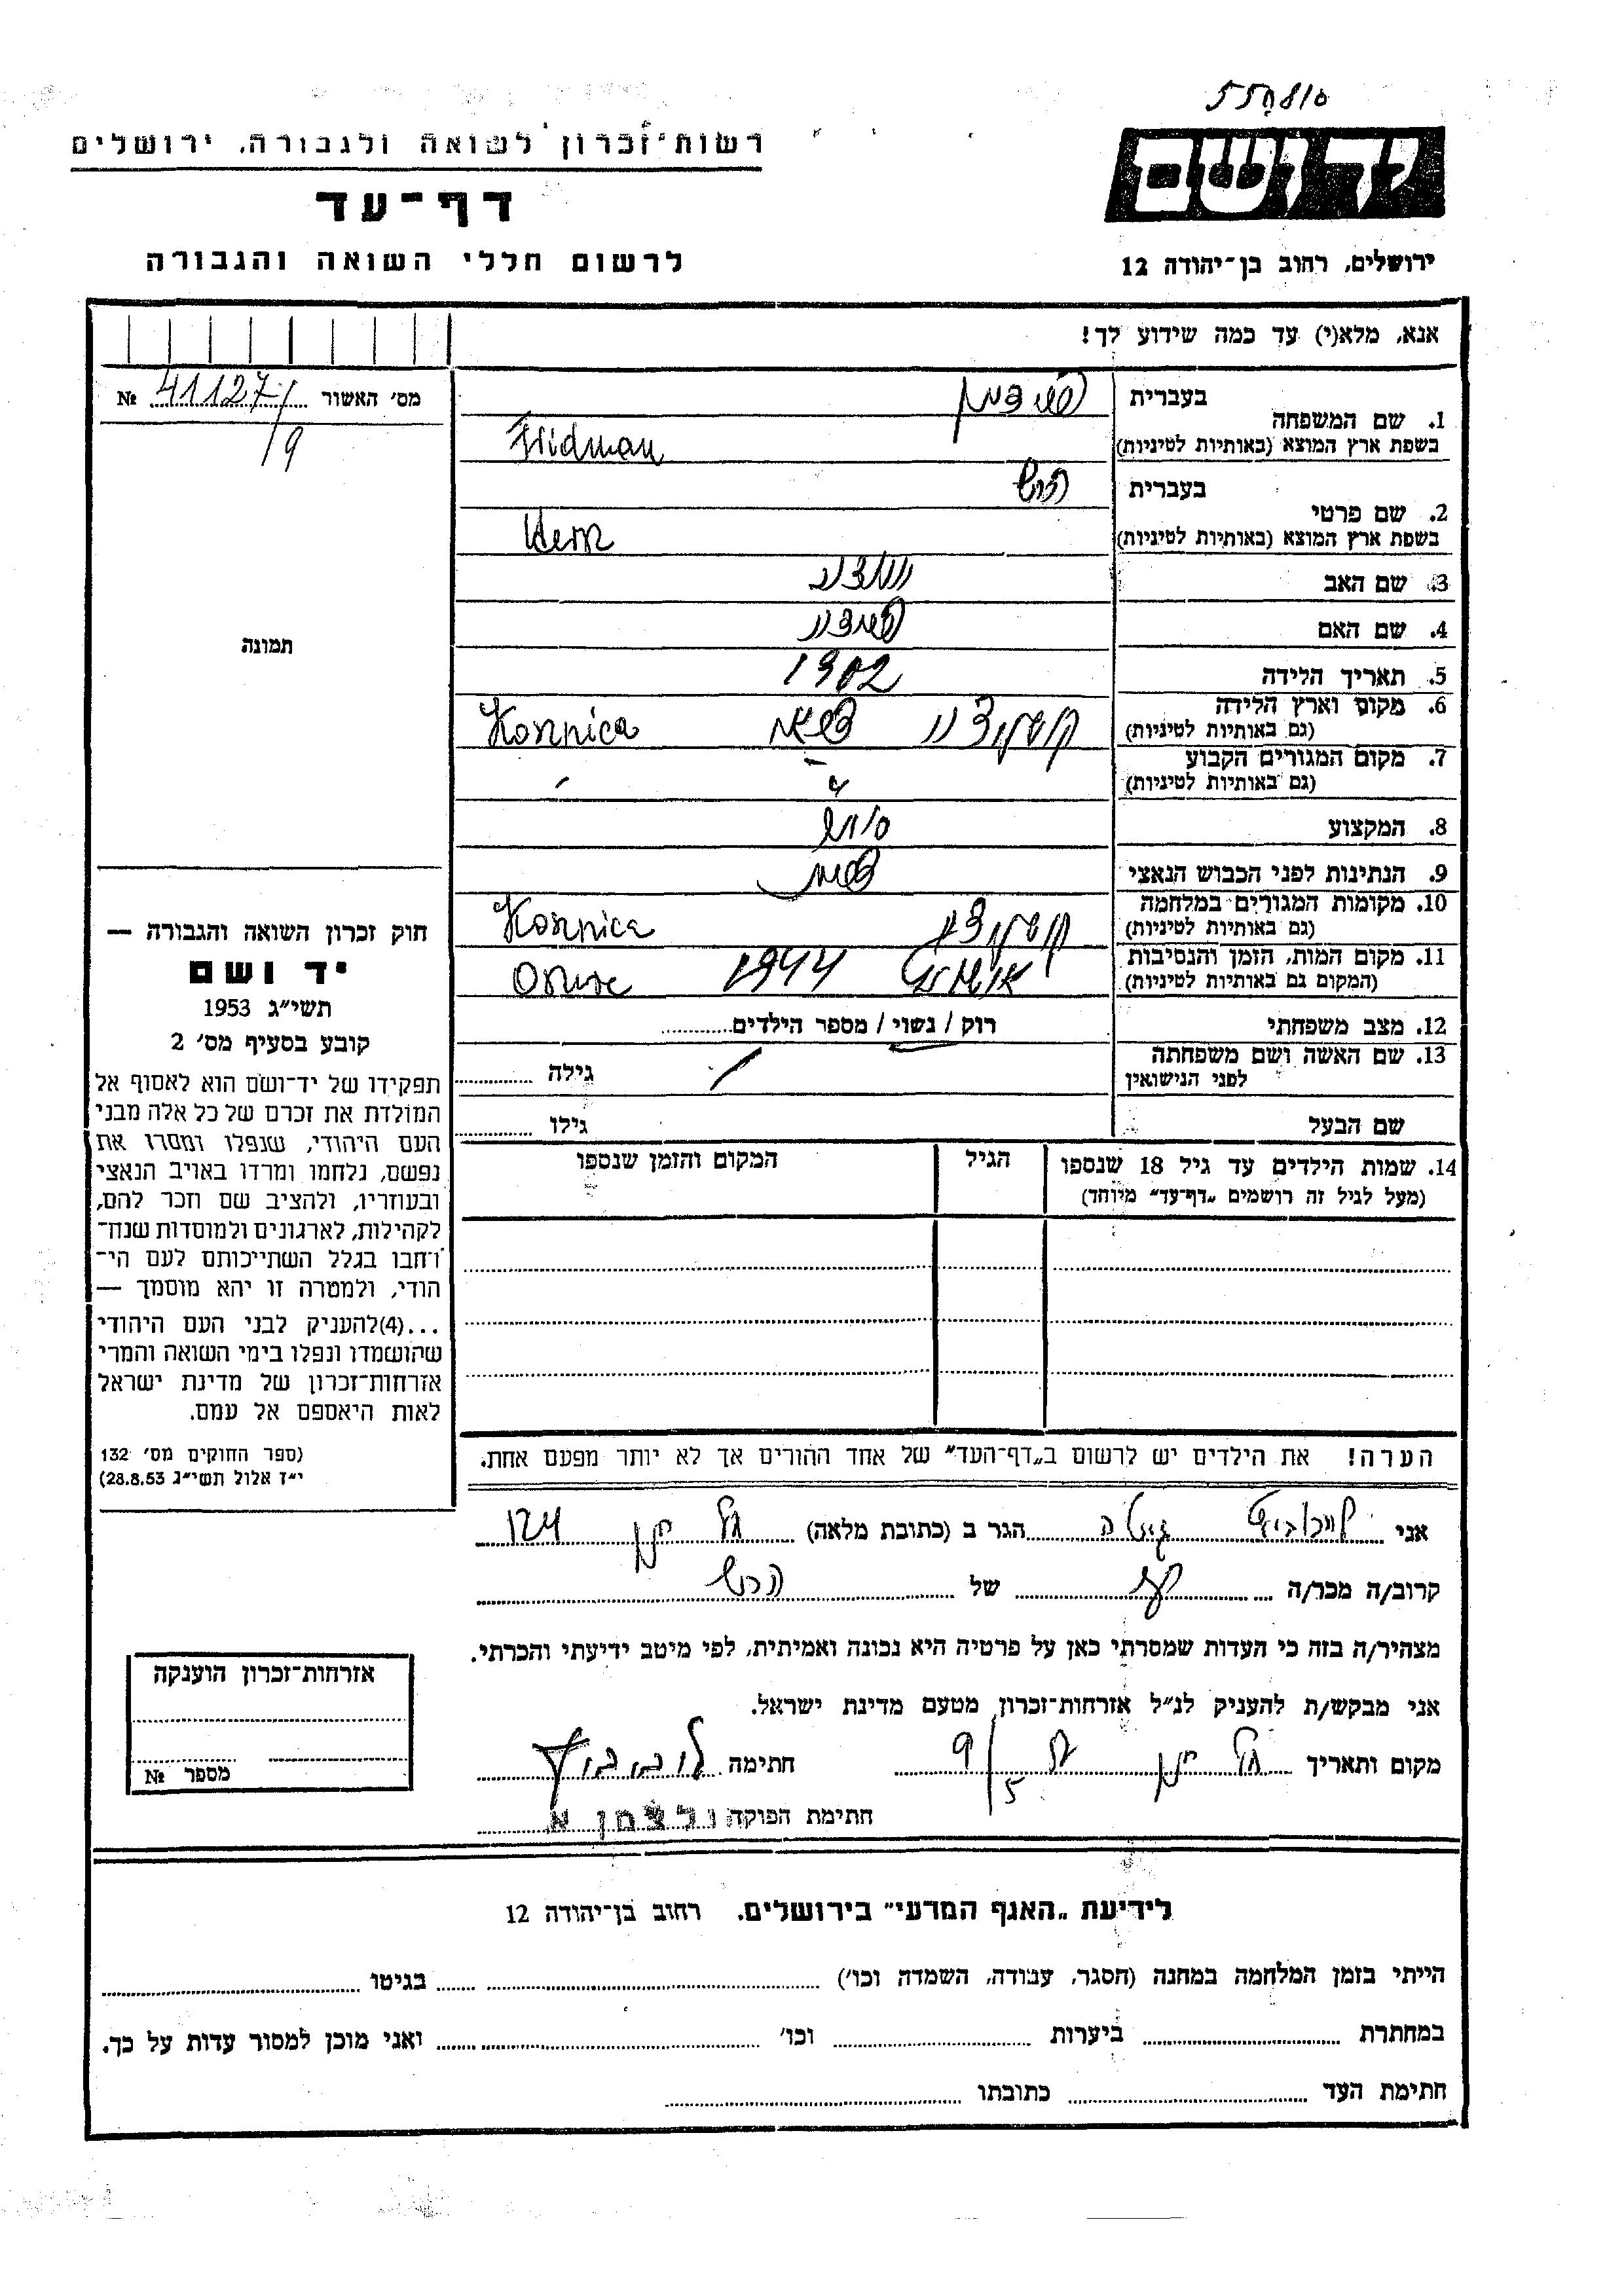 550810
רשות־זכרון לשואה ולגבורה, ירושלים
יד ושם
דף־עד
לרשום חללי השואה והגבורה
ירושלים, רחוב בן־יהודה 12
אנא, מלא(י) עד כמה שידוע לך!
מס׳ האשור № 41127/
9
1. שם המשפחה
בעברית פרידמן
בשפת ארץ המוצא (באותיות לטיניות) Fridman
2. שם פרטי
בעברית הרש
בשפת ארץ המוצא (באותיות לטיניות) Hersz
3. שם האב
4. שם האם
5. תאריך הלידה 1902
6. מקום וארץ הלידה
(גם באותיות לטיניות) Kosznica
7. מקום המגורים הקבוע
(גם באותיות לטיניות)
8. המקצוע
9. הנתינות לפני הכבוש הנאצי
10. מקומות המגורים במלחמה
(גם באותיות לטיניות)
11. מקום המות, הזמן והנסיבות 1944
(המקום גם באותיות לטיניות)
12. מצב משפחתי רוק / נשוי / מספר הילדים
13. שם האשה ושם משפחתה
לפני הנישואין
גילה
שם הבעל
גילו
14. שמות הילדים עד גיל 18 שנספו
(מעל לגיל זה רושמים „דף־עד״ מיוחד)
הגיל
המקום והזמן שנספו
תמונה
חוק זכרון השואה והגבורה —
יד ושם
תשי״ג 1953
קובע בסעיף מס׳ 2
תפקידו של יד־ושם הוא לאסוף אל
המולדת את זכרם של כל אלה מבני
העם היהודי, שנפלו ומסרו את
נפשם, נלחמו ומרדו באויב הנאצי
ובעוזריו, ולהציב שם וזכר להם,
לקהילות, לארגונים ולמוסדות שנח־
רבו בגלל השתייכותם לעם הי־
הודי, ולמטרה זו יהא מוסמך —
...(4)להעניק לבני העם היהודי
שהושמדו ונפלו בימי השואה והמרי
אזרחות־זכרון של מדינת ישראל
לאות היאספם אל עמם.
(ספר החוקים מס׳ 132
י״ז אלול תשי״ג 28.8.53)
הערה! את הילדים יש לרשום ב„דף־העד״ של אחד ההורים אך לא יותר מפעם אחת.
אני הגר ב (כתובת מלאה)
קרוב/ה מכר/ה של הרש
מצהיר/ה בזה כי העדות שמסרתי כאן על פרטיה היא נכונה ואמיתית, לפי מיטב ידיעתי והכרתי.
אני מבקש/ת להעניק לנ״ל אזרחות־זכרון מטעם מדינת ישראל.
מקום ותאריך 9/5 חתימה
חתימת הפוקד ולצמן א
אזרחות־זכרון הוענקה
מספר №
לידיעת „האגף המדעי״ בירושלים, רחוב בן־יהודה 12
הייתי בזמן המלחמה במחנה (הסגר, עבודה, השמדה וכו׳) בגיטו
במחתרת ביערות וכו׳ ואני מוכן למסור עדות על כך.
חתימת העד כתובתו